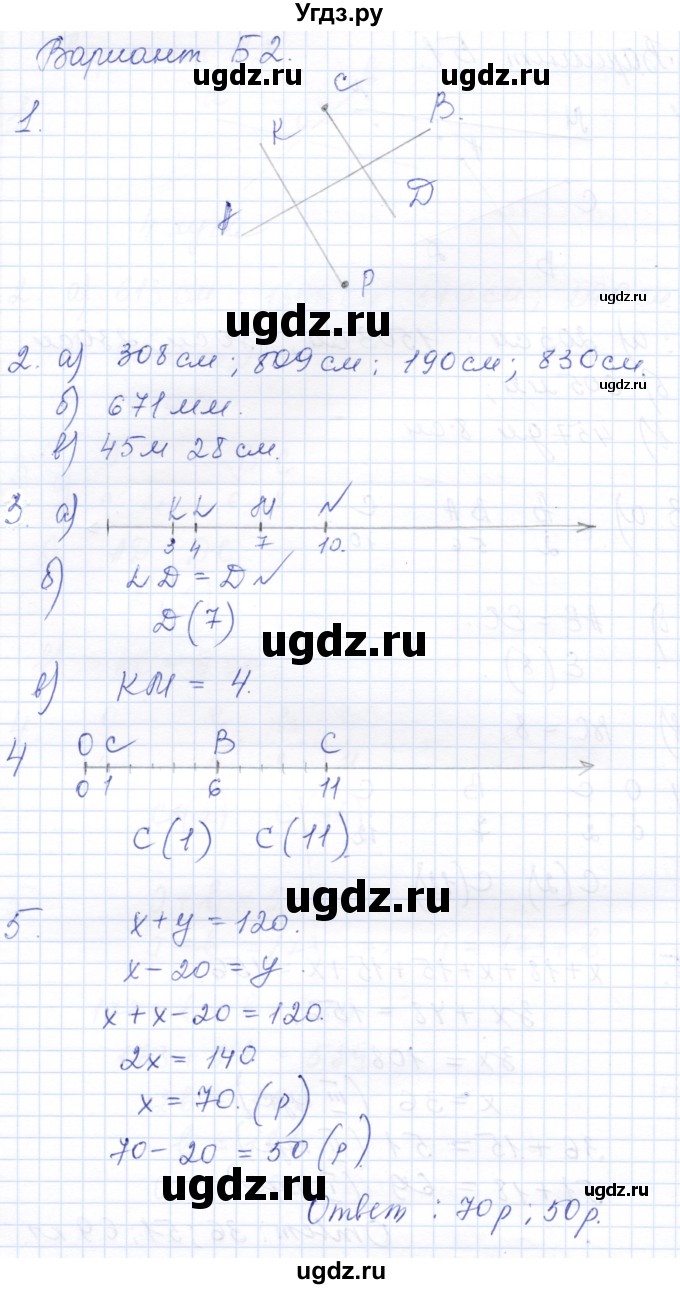 Угдз.ру
Вариант Б2.
ugdz.ru
ugdz.ru
1.
C
K
B.
A
D
P
ugdz.ru
ugdz.ru
2. а) 308 см; 809 см; 190 см; 830 см.
б) 671 мм.
в) 45 м 28 см.
3. а) K L M N
3 4 7 10.
б) LD = DN
D(7)
ugdz.ru
в) KM = 4.
4 O C B C
0 1 6 11
C(1) C(11)
ugdz.ru
5. x + y = 120.
x - 20 = y
x + x - 20 = 120.
2x = 140
x = 70. (р)
70 - 20 = 50 (р).
ugdz.ru
ugdz.ru
Ответ: 70р; 50р.
ugdz.ru